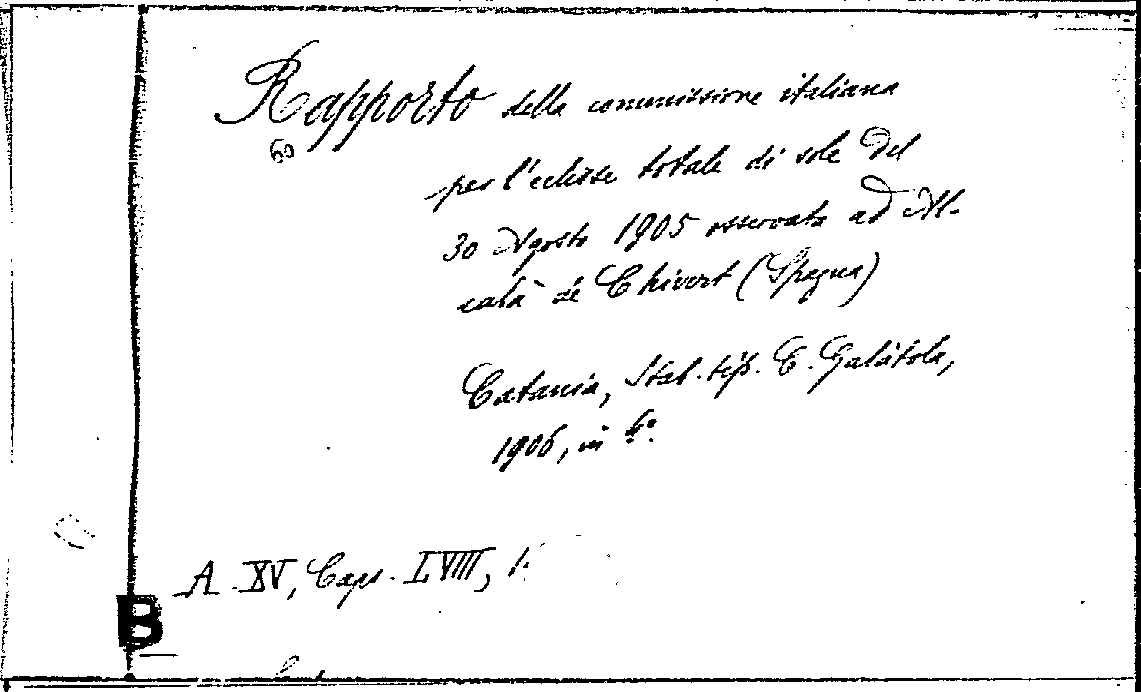 Rapporto della commissione italiana
60
per l'eclisse totale di sole del
30 Agosto 1905 osservato ad Al-
calà de Chivert (Spagna)
Catania, Stab. tip. C. Galàtola,
1906, in 4°.
A. XV, Caps. LVIII, 1.
B